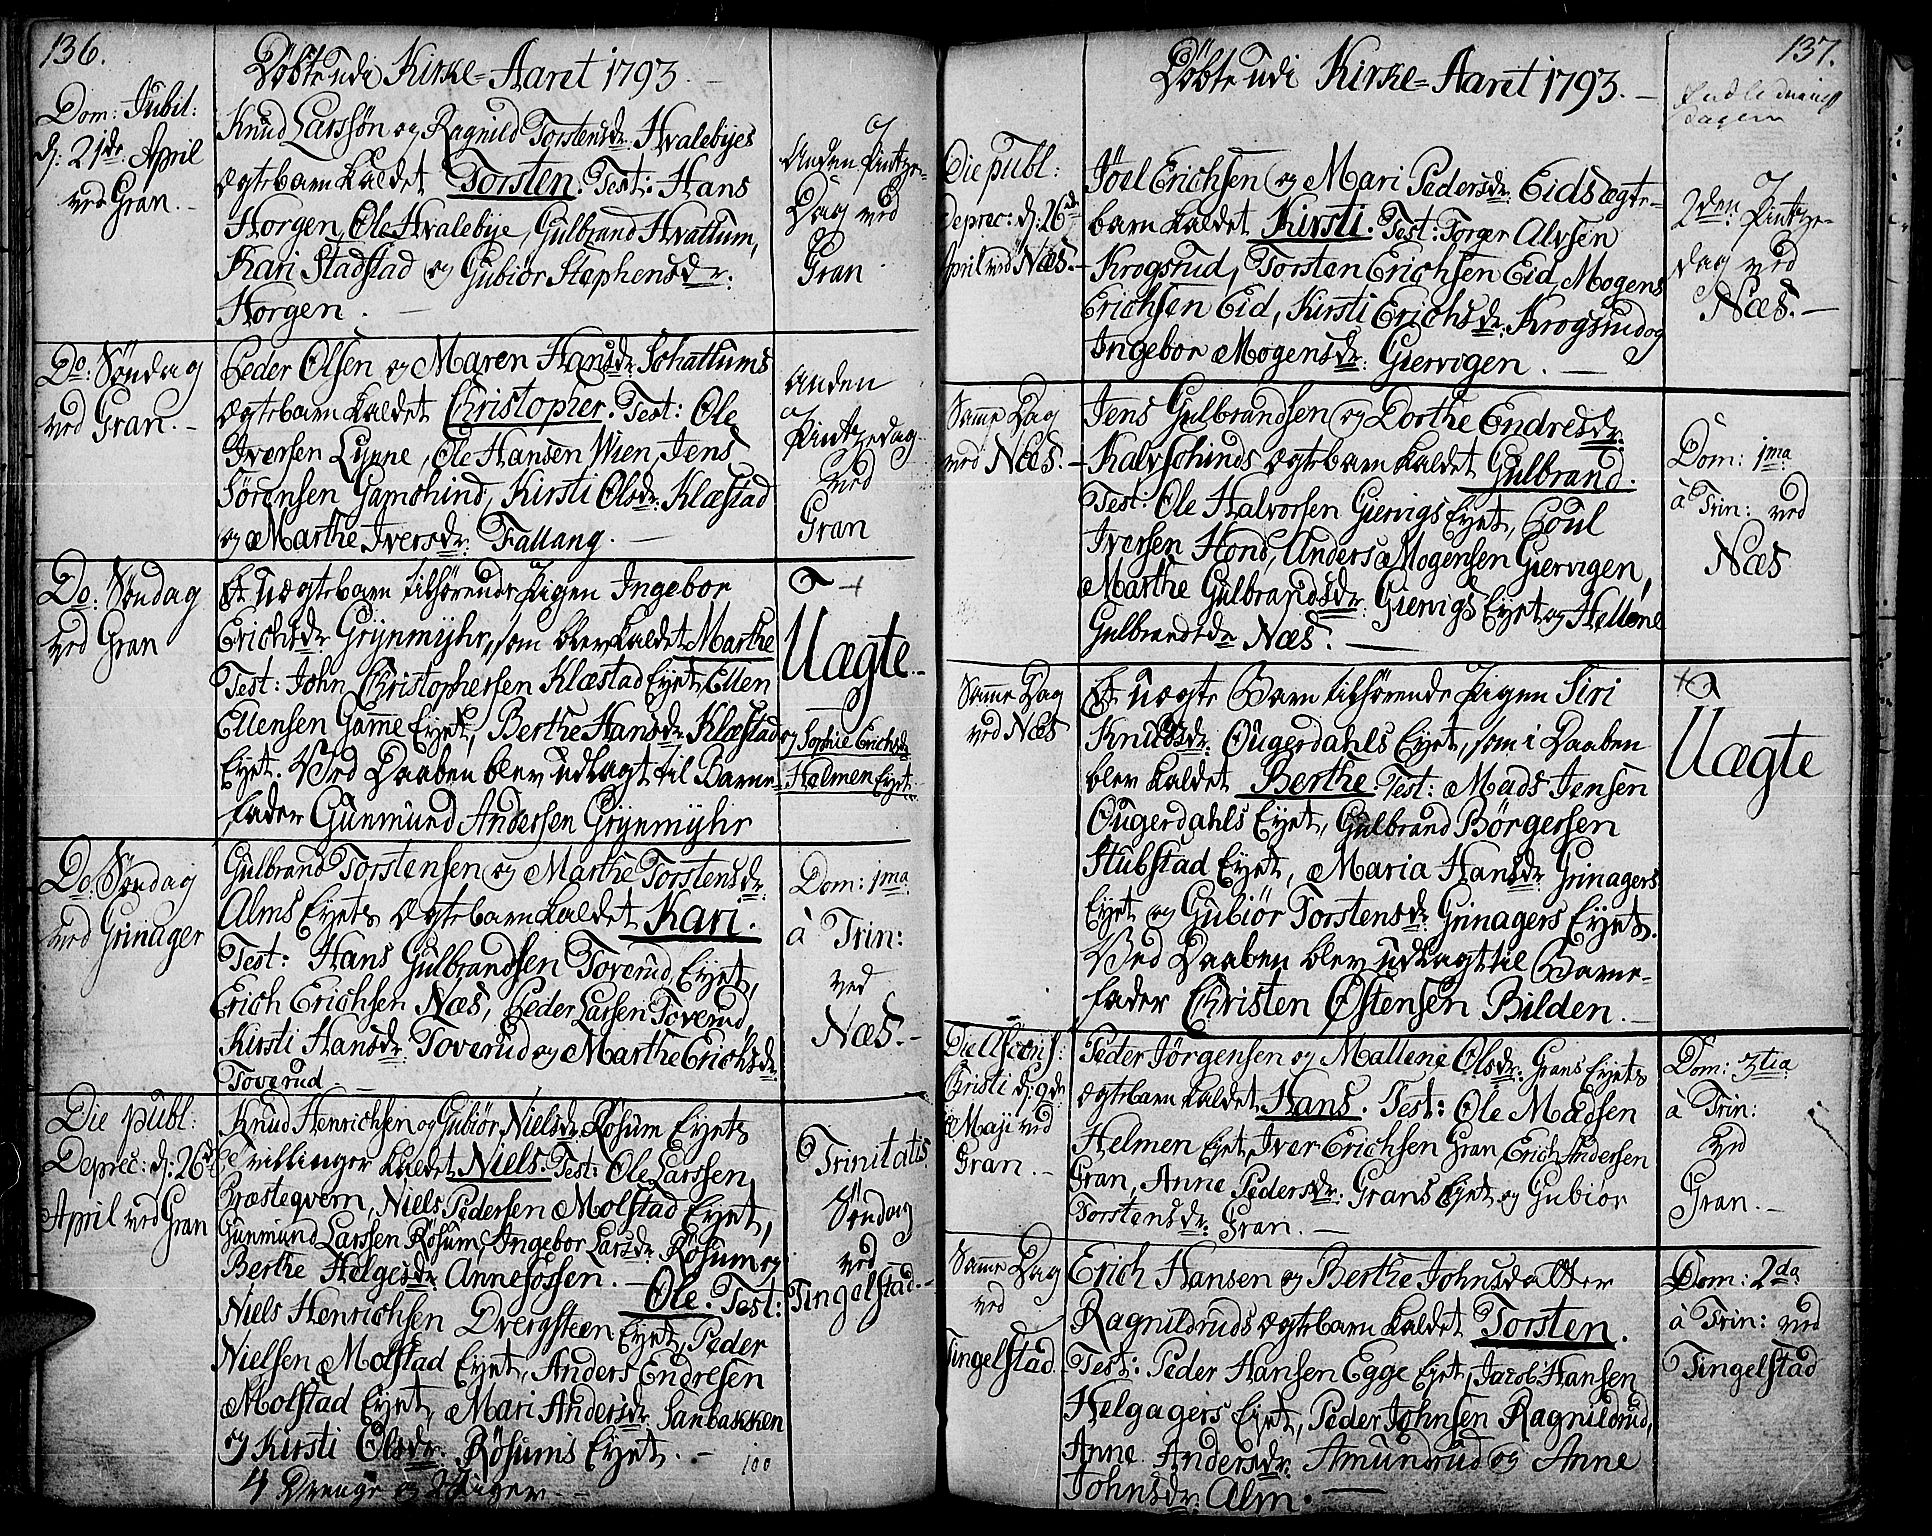 136.
Döbte udi Kirke=Aaret 1793.
Dom: Jubil:
d: 21de April
ved Gran.
Knud Larssøn og Ragnild Torstensdr: Hvalebyes
ægtebarn kaldet Torsten. Test: Hans
Horgen, Ole Hvalebye, Gulbrand Hvattum,
Kari Stadstad og Gubiør Stephensdr:
Horgen.
Anden Pintze-
Dag ved
Gran
Do: Søndag
ved Gran.
Peder Olsen og Maren Hansdr: Schattums
ægtebarn kaldet Christopher. Test: Ole
Iversen Lynne, Ole Hansen Wien, Jens
Sørensen Gamshind, Kirsti Olsdr: Klæstad
og Marthe Iversdr: Fallang.
Anden
Pintzedag
ved
Gran
Do: Søndag
ved Gran
Et uægte barn tilhørende Pigen Ingebor
Erichsdr: Grijnmijhr, som blev kaldet Marthe
Test: John Christophersen Klæstad Eyet, Ellen
Ellensen Game Eyet, Berthe Hansdr: Klæstad
Eyet. Ved Daaben blev udlagt til Barne-
fader Gunmund Andersen Grijnmijhr
Uægte.
og Sophie Erichsdr
Hælmen Eyet.
Do: Søndag
ved Grinager
Gulbrand Torstensen og Marthe Torstensdr:
Alms Eyets ægtebarn kaldet Kari.
Test: Hans Gulbrandsen Toverud Eyet,
Erich Erichsen Næs, Peder Larsen Toverud,
Kirsti Hansdr: Toverud og Marthe Erichsdr:
Toverud
Dom: 1ma
à Trin:
ved
Næs.
Die publ:
Deprec: d: 26de
April ved Gran
Knud Henrichsen og Gubiør Nielsdr: Røsum Eyets
Tvillinger kaldet Niels. Test: Ole Larssen
Præstegvern, Niels Pedersen Molstad Eyet,
Gunmund Larssen Røsum, Ingebor Larsdr: Røsum og
Berthe Helgesdr: Annefossen. - Ole. Test:
Niels Henrichsen Dvergsteen Eyet, Peder
Nielsen Molstad Eyet, Anders Endresen
Molstad Eyet, Mari Andersdr: Sanbakken
og Kirsti Olsdr: Røsums Eyet.
100
4 Drenge og 2 Piger
Trinitatis
Søndag
ved
Tingelstad.
137.
Döbte udi Kirke=Aaret 1793.
Die publ:
Deprec: d: 26de
April ved Næs.
Jöel Erichsen og Mari Pedersdr: Eids ægte-
barn kaldet Kirsti. Test: Torger Alvsen
Krogsrud, Torsten Erichsen Eid, Mogens
Erichsen Eid, Kirsti Erichsdr: Krogsrud og
Ingebor Mogensdr: Giervigen.
2den Pintze-
Dag ved
Næs.
Samme Dag
ved Næs.
Jens Gulbrandsen og Dorthe Endresdr:
Kalvschinds ægtebarn kaldet Gulbrand.
Test: Ole Halvorsen Giervigs Eyet, Poul
Iversen Hond, Anders Mogensen Giervigen,
Marthe Gulbrandsdr: Giervigs Eyet og Hellene
Gulbrandsdr Næs.
Dom: 1ma
à Trin: ved
Næs
Samme Dag
ved Næs
Et uægte Barn tilhørende Pigen Siri
Knudsdr: Ougerdahls Eyet, som i Daaben
blev kaldet Berthe. Test: Mads Jensen
Ougerdahls Eyet, Gulbrand Börgersen
Stubstad Eyet, Maria Hansdr: Grinagers
Eyet og Gubiör Torstensdr: Grinagers Eyet.
Ved Daaben blev udlagt til Barne-
fader Christen Østensen Bilden.
Uægte
Die Ascens:
Christi d: 9de
Maji ved
Gran.
Peder Jörgensen og Mallene Olsdr: Grans Eyets
ægtebarn kaldet Hans. Test: Ole Madsen
Helmen Eyet, Iver Erichsen Gran, Erich Andersen
Gran, Anne Pedersdr: Grans Eyet og Gubiør
Torstensdr: Gran.
Dom: 3tia
à Trin:
ved
Gran.
Samme Dag
ved
Tingelstad
Erich Hansen og Berthe Johnsdatter
Ragnildruds ægtebarn kaldet Torsten.
Test: Peder Hansen Egge Eyet, Jacob Hansen
Helgagers Eyet, Peder Johnsen Ragnildrud,
Anne Andersdr: Amundrud og Anne
Johnsdr: Alm.
Dom: 2da
à Trin: ved
Tingelstad